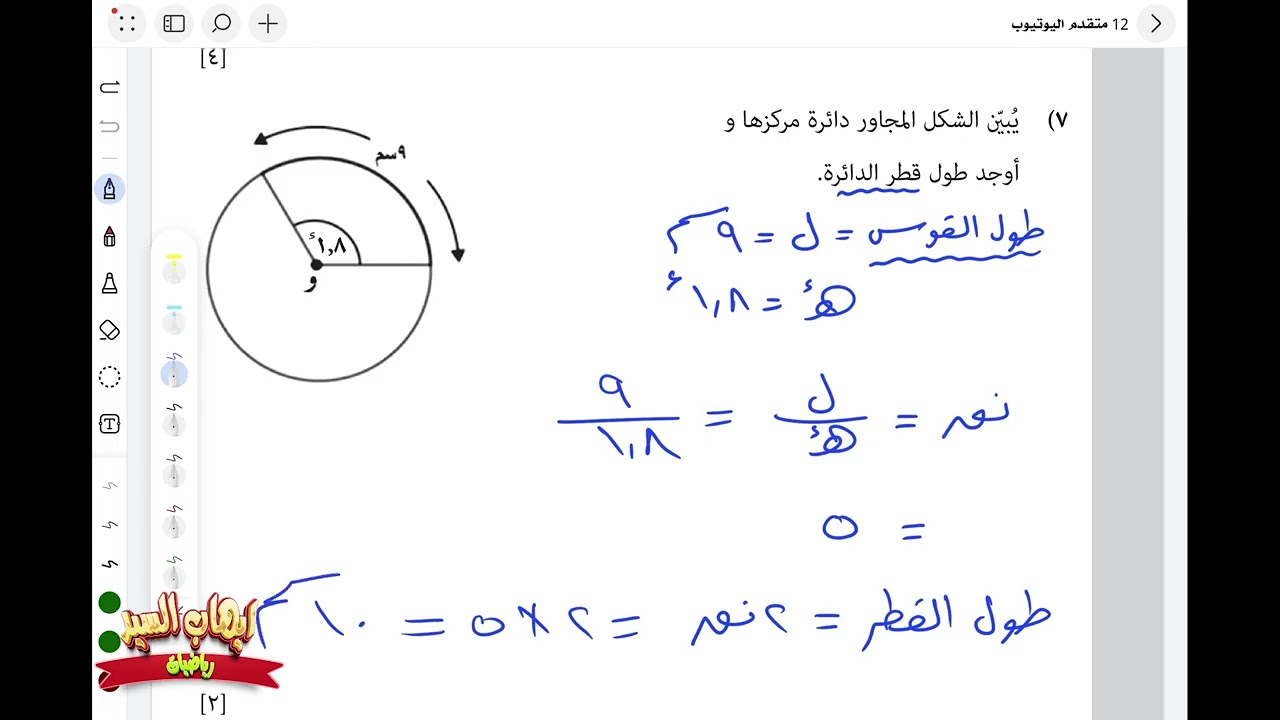 12 متقدم اليوتيوب
[٤]
٧) يُبيّن الشكل المجاور دائرة مركزها و
أوجد طول قطر الدائرة.
٩سم
١,٨ء
و
طول القوس = ل = ٩ سم
هـء = ١,٨ء
نق = ل / هـء = ٩ / ١,٨
= ٥
طول القطر = ٢ نق = ٢ × ٥ = ١٠ سم
ايهاب السيد
رياضيات
[٢]
T